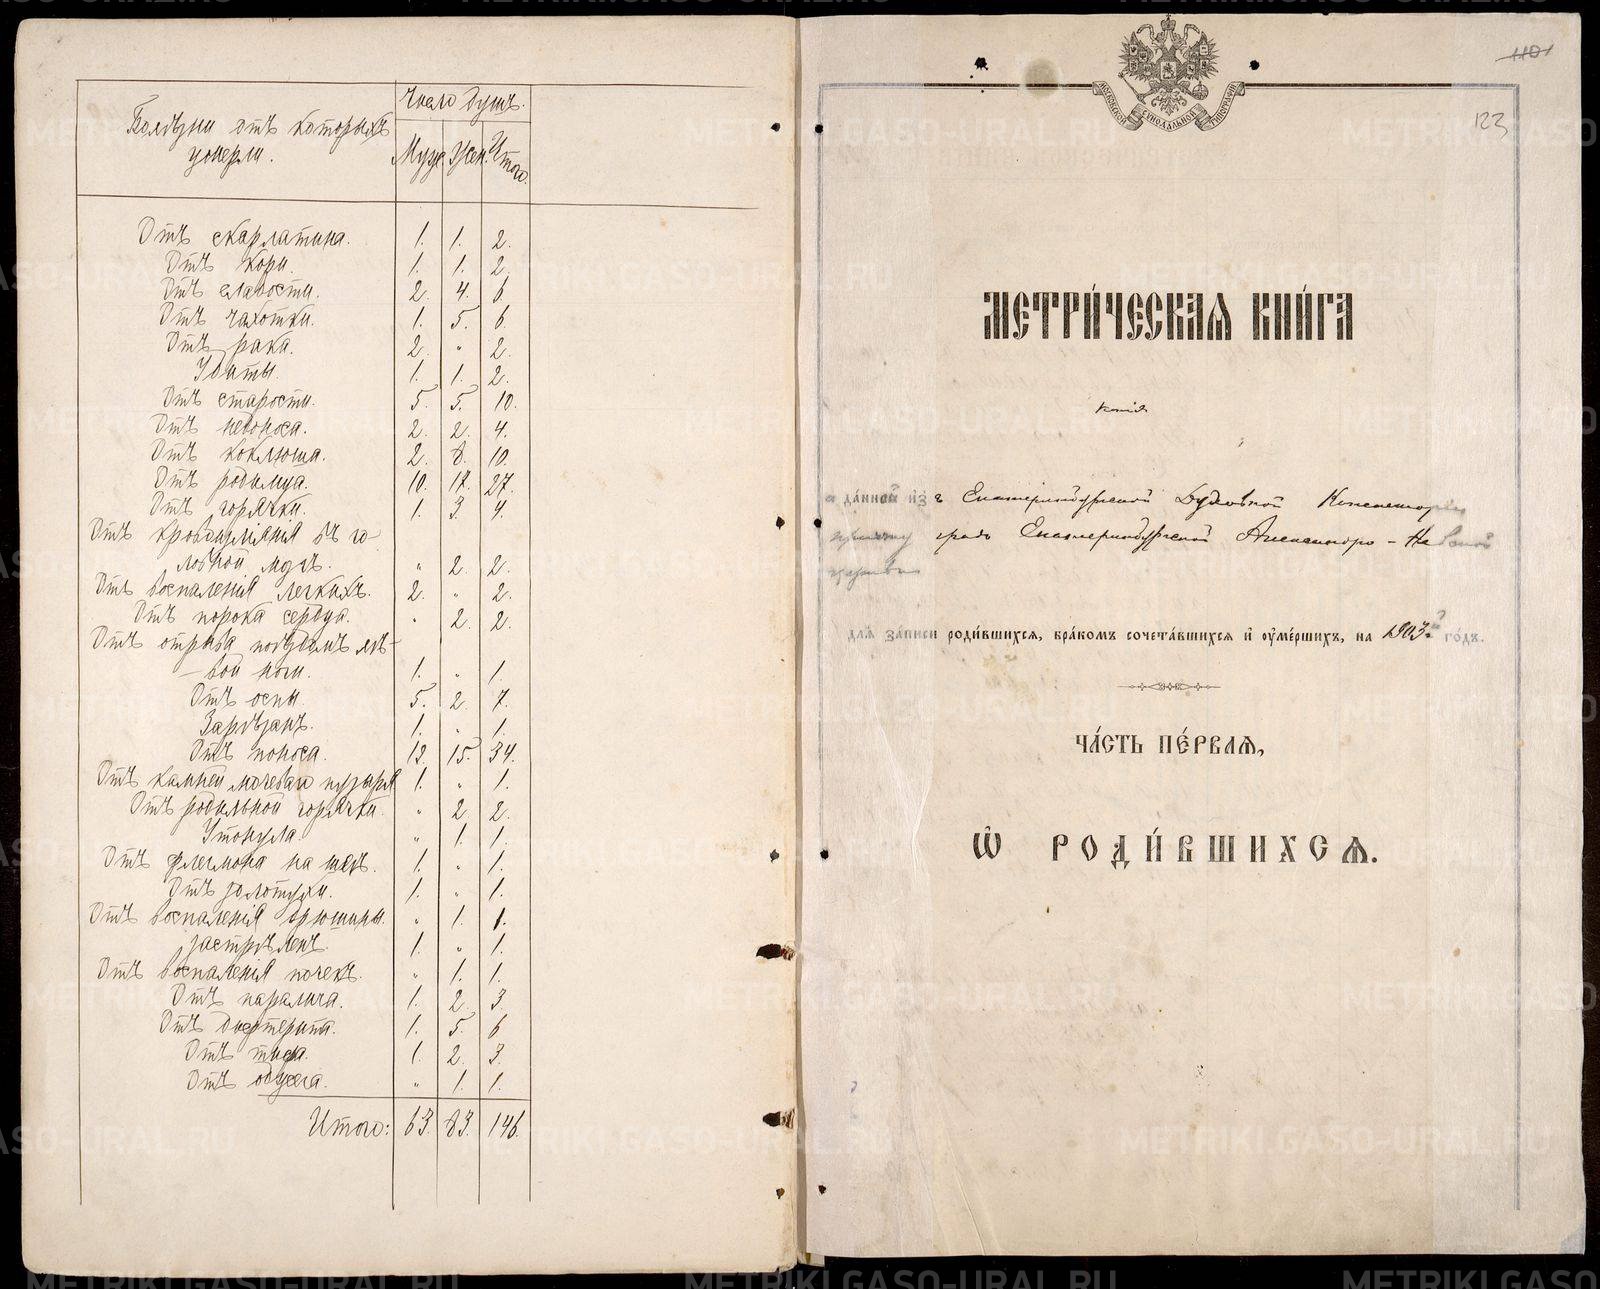 Болѣзни отъ которыхъ
умерли.
Число душъ.
Муж. Жен. Итого.
Отъ скарлатина. 1. 1. 2.
Отъ кори. 1. 1. 2.
Отъ слабости. 2. 4. 6.
Отъ чахотки. 1. 5. 6.
Отъ рака. 2. „ 2.
Убиты. 1. 1. 2.
Отъ старости. 5. 5. 10.
Отъ недоноса. 2. 2. 4.
Отъ коклюша. 2. 8. 10.
Отъ родимца. 10. 17. 27.
Отъ горячки. 1. 3. 4.
Отъ кровоизлiянiя въ го-
ловной мозгъ. „ 2. 2.
Отъ воспаленiя легкихъ. 2. „ 2.
Отъ порока сердца. „ 2. 2.
Отъ отрѣза поѣздомъ лѣ-
-вой ноги. 1. „ 1.
Отъ оспы. 5. 2. 7.
Зарѣзанъ. 1. „ 1.
Отъ поноса. 15. 34.
Отъ камней мочеваго пузыря 1. „ 1.
Отъ родильной горячки. „ 2. 2.
Утонула. „ 1. 1.
Отъ флегмона на шеѣ. 1. „ 1.
Отъ золотухи. 1. „ 1.
Отъ воспаленiя брюшины. „ 1. 1.
Застрѣленъ. 1. „ 1.
Отъ воспаленiя почекъ. „ 1. 1.
Отъ паралича. 1. 2. 3.
Отъ дифтерита. 1. 5. 6
Отъ тифа. 1. 2. 3.
Отъ обжога. „ 1. 1.
Итого: 63. 83. 146.
110
123
МОСКОВСКОЙ СѴНОДАЛЬНОЙ ТИПОГРАФІИ
МЕТРИ́ЧЕСКАѦ КНИ́ГА
копiя
да́нной из Екатеринбургской Духовной Консисторіи
причту градо Екатеринбургской Александро-Невской
церкви
для за́писи роди́вшихся, бра́комъ сочета́вшихся и҆ оу҆ме́ршихъ, на 1903й го́дъ.
ЧА́СТЬ ПЕ́РВАѦ,
Ѡ҆ РОДИ́ВШИХСѦ.
METRIKI.GASO-URAL.RU